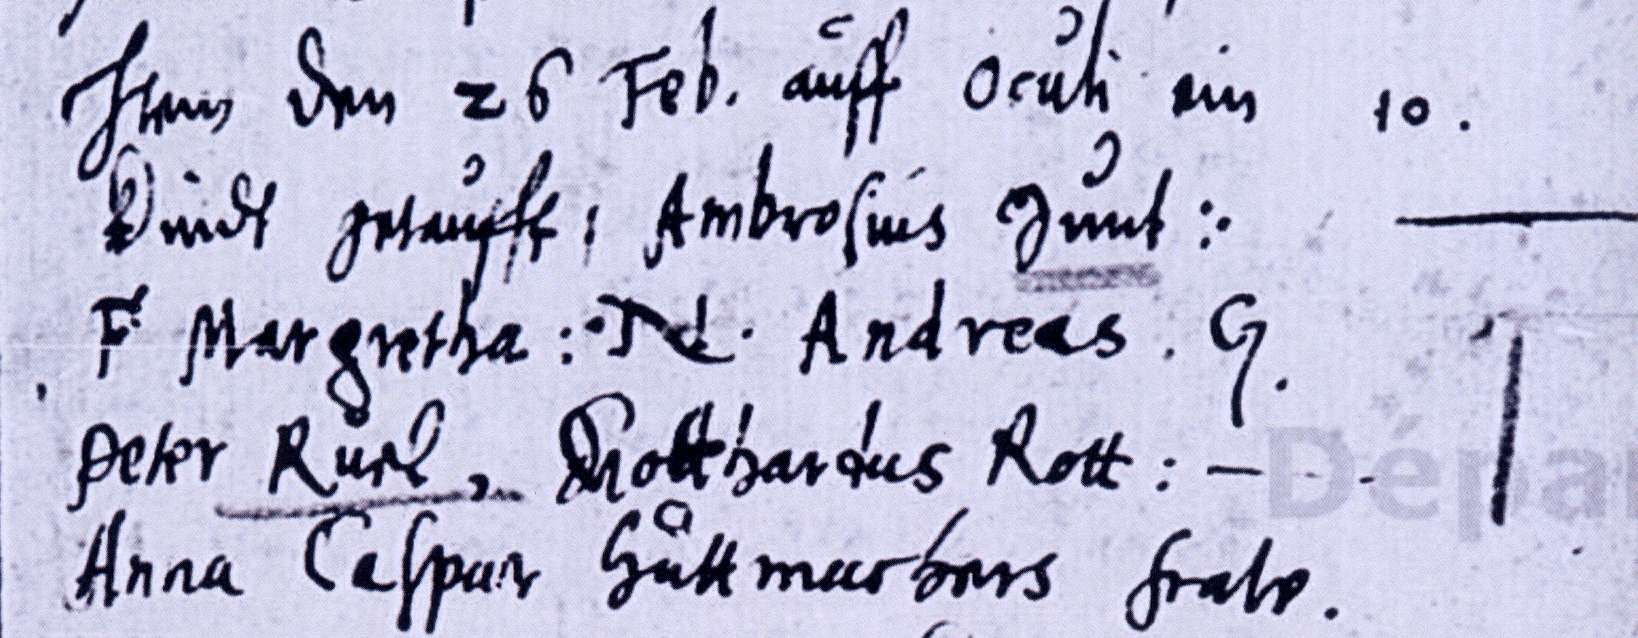 Item den 26 Feb. auff Oculi ein 10.
Kindt getaufft, Ambrosius Junt :
F Margretha : N. Andreas. G.
Peter Rusch, Gotthardus Rott : —
Anna Caspar Huttmachers fraw.
Dépa